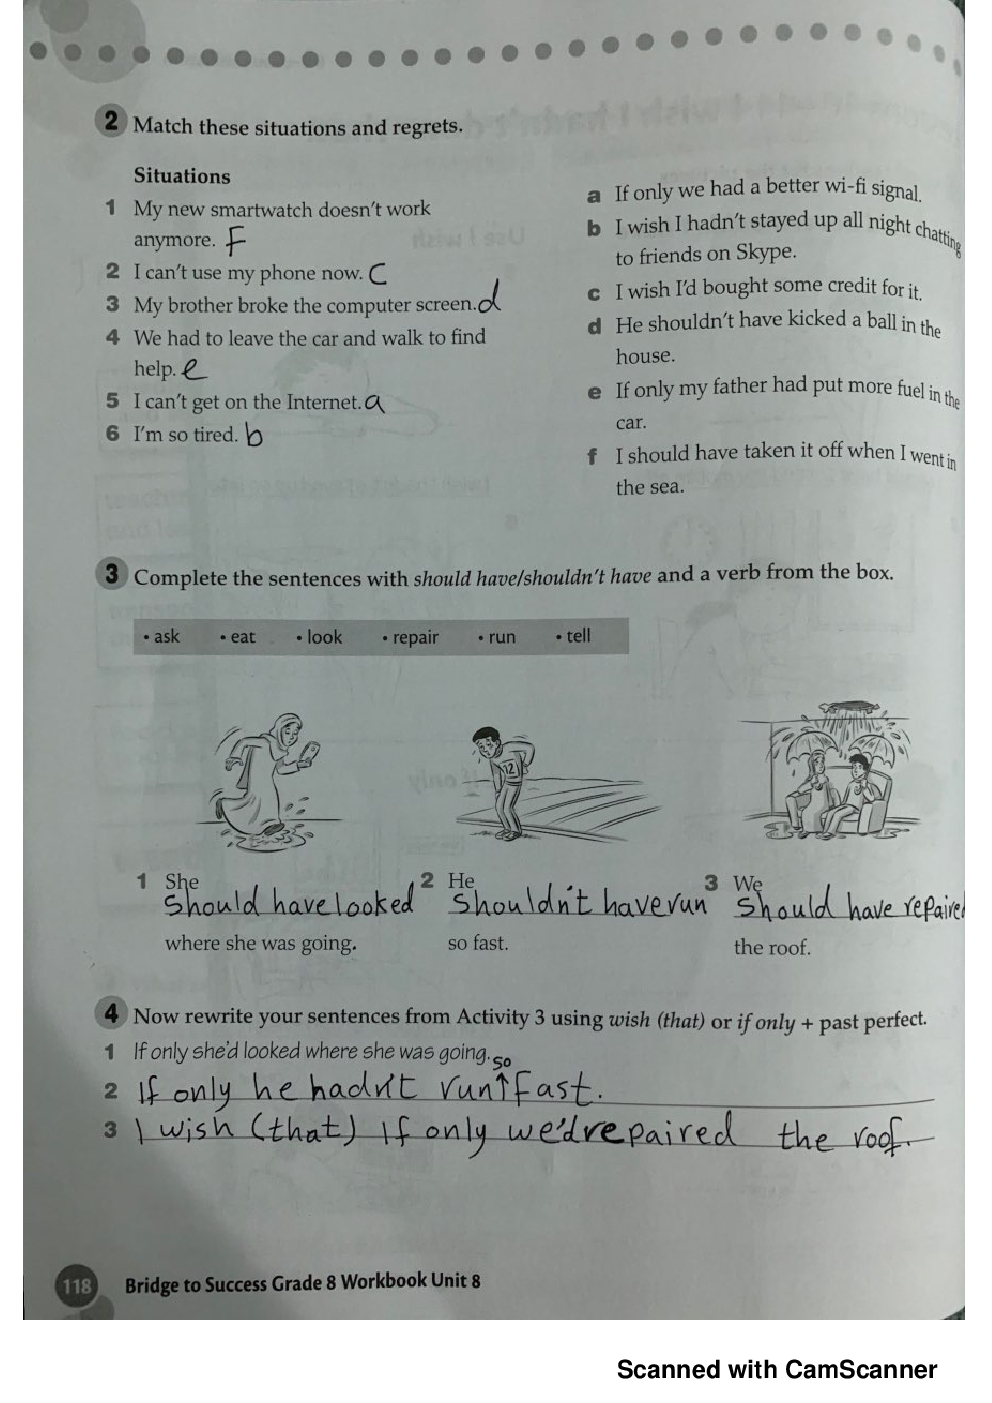 2 Match these situations and regrets.
Situations
1 My new smartwatch doesn't work
anymore. F
2 I can't use my phone now. C
3 My brother broke the computer screen. d
4 We had to leave the car and walk to find
help. e
5 I can't get on the Internet. a
6 I'm so tired. b
a If only we had a better wi-fi signal.
b I wish I hadn't stayed up all night chatting
to friends on Skype.
c I wish I'd bought some credit for it.
d He shouldn't have kicked a ball in the
house.
e If only my father had put more fuel in the
car.
f I should have taken it off when I went in
the sea.
3 Complete the sentences with should have/shouldn't have and a verb from the box.
• ask • eat • look • repair • run • tell
12
1 She
should have looked
where she was going.
2 He
shouldn't have run
so fast.
3 We
should have repaired
the roof.
4 Now rewrite your sentences from Activity 3 using wish (that) or if only + past perfect.
1 If only she'd looked where she was going.
2 If only he hadn't run so fast.
3 I wish (that) If only we'd repaired the roof.
118 Bridge to Success Grade 8 Workbook Unit 8
Scanned with CamScanner